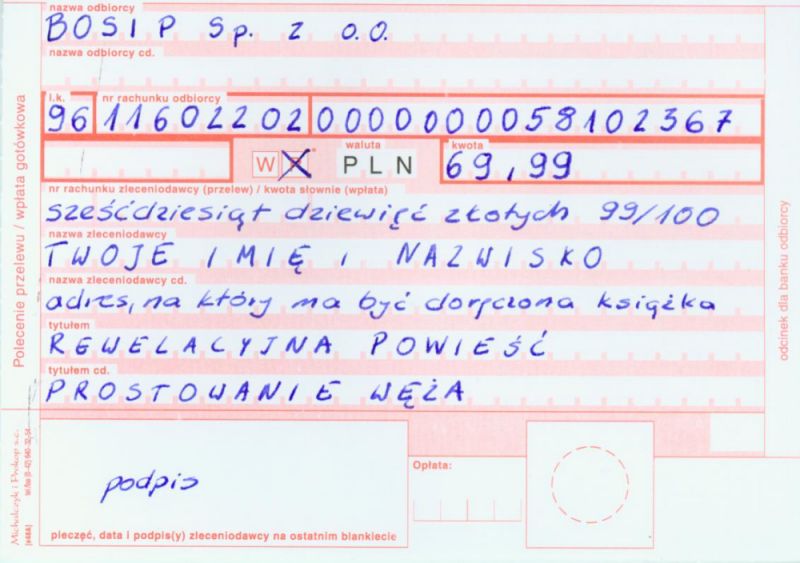 nazwa odbiorcy
BOSIP Sp. z o.o.
nazwa odbiorcy cd.
l.k. nr rachunku odbiorcy
96 11602202 0000000058102367
W P * waluta PLN kwota 69,99
nr rachunku zleceniodawcy (przelew) / kwota słownie (wpłata)
sześćdziesiąt dziewięć złotych 99/100
nazwa zleceniodawcy
TWOJE IMIĘ i NAZWISKO
nazwa zleceniodawcy cd.
adres, na który ma być doręczona książka
tytułem
REWELACYJNA POWIEŚĆ
tytułem cd.
PROSTOWANIE WĘŻA
podpis
Opłata:
pieczęć, data i podpis(y) zleceniodawcy na ostatnim blankiecie
Polecenie przelewu / wpłata gotówkowa
odcinek dla banku odbiorcy
Michalczyk i Prokop s.c.